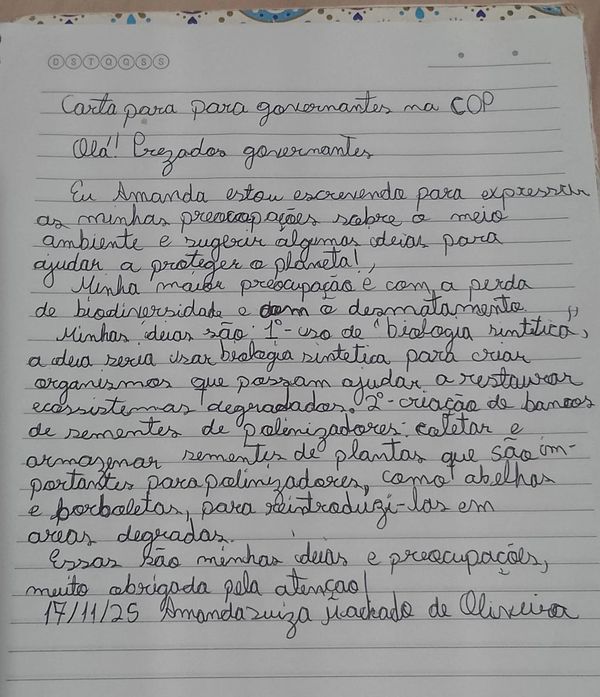 D S T Q Q S S
Carta para para governantes na COP
Olá! Prezados governantes
Eu Amanda estou escrevendo para expressar
as minhas preocupações sobre o meio
ambiente e sugerir algumas ideias para
ajudar a proteger o planeta!,
Minha maior preocupação é com a perda
de biodiversidade e com o desmatamento.
Minhas ideias são: 1º-uso de "biologia sintética",
a ideia seria usar biologia sintetica para criar
organismos que possam ajudar a restaurar
ecossistemas degradados. 2º-criação de bancos
de sementes de polinizadores: coletar e
armazenar sementes de plantas que são im-
portantes para polinizadores, como abelhas
e borboletas, para reintroduzi-las em
areas degradas.
Essas são minhas ideias e preocupações,
muito obrigada pela atenção!
17/11/25 Amanda Luiza Machado de Oliveira